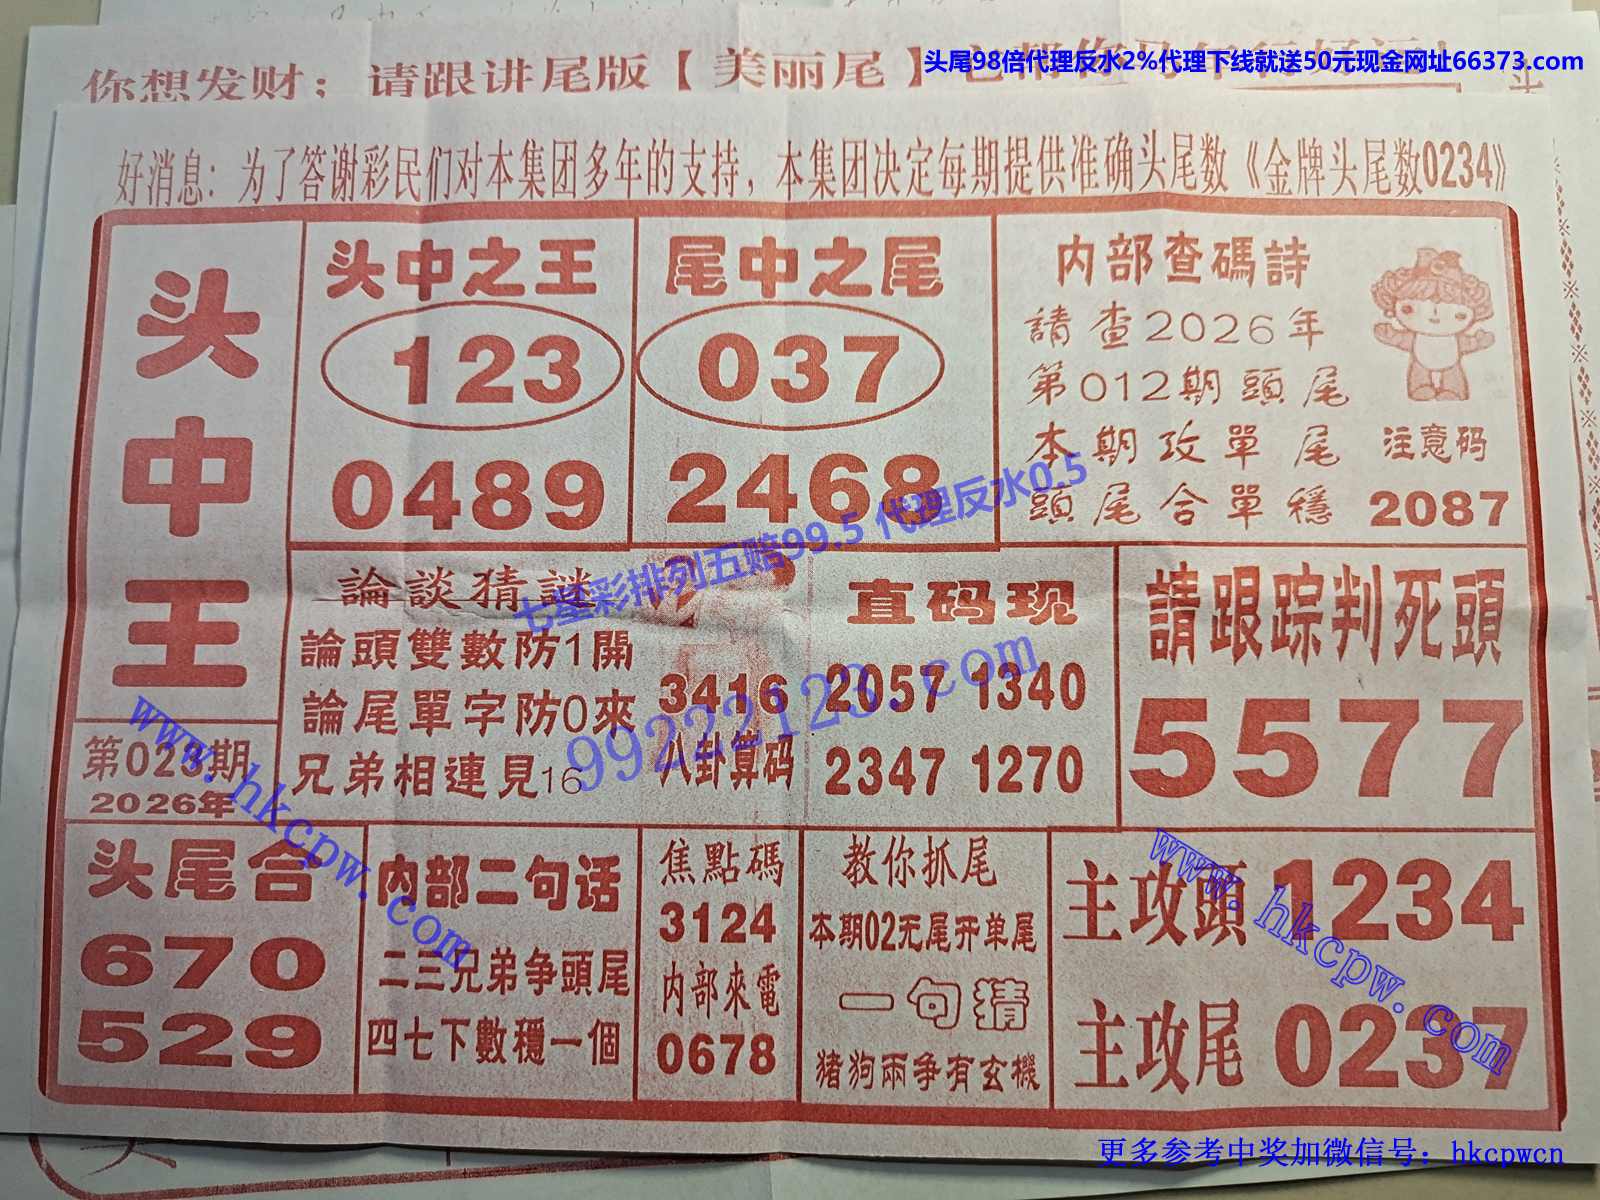 头尾98倍代理反水2%代理下线就送50元现金网址66373.com
你想发财：请跟讲尾版【美丽尾】
好消息：为了答谢彩民们对本集团多年的支持，本集团决定每期提供准确头尾数《金牌头尾数0234》
头中王
第023期
2026年
头中之王
123
0489
尾中之尾
037
2468
内部查碼詩
請查2026年
第012期頭尾
本期攻單尾
頭尾合單穩
注意码
2087
七星彩排列五赔99.5 代理反水0.5
論談猜謎
論頭雙數防1開
論尾單字防0來
兄弟相連見16
3416
八卦算码
直码现
2057 1340
2347 1270
99222123.com
請跟踪判死頭
5577
www.hkcpw.com
头尾合
670
529
内部二句话
二三兄弟争頭尾
四七下數穩一個
焦點碼
3124
内部來電
0678
教你抓尾
本期02无尾开单尾
一句猜
猪狗兩争有玄機
主攻頭1234
主攻尾0237
www.hkcpw.com
更多参考中奖加微信号：hkcpwcn